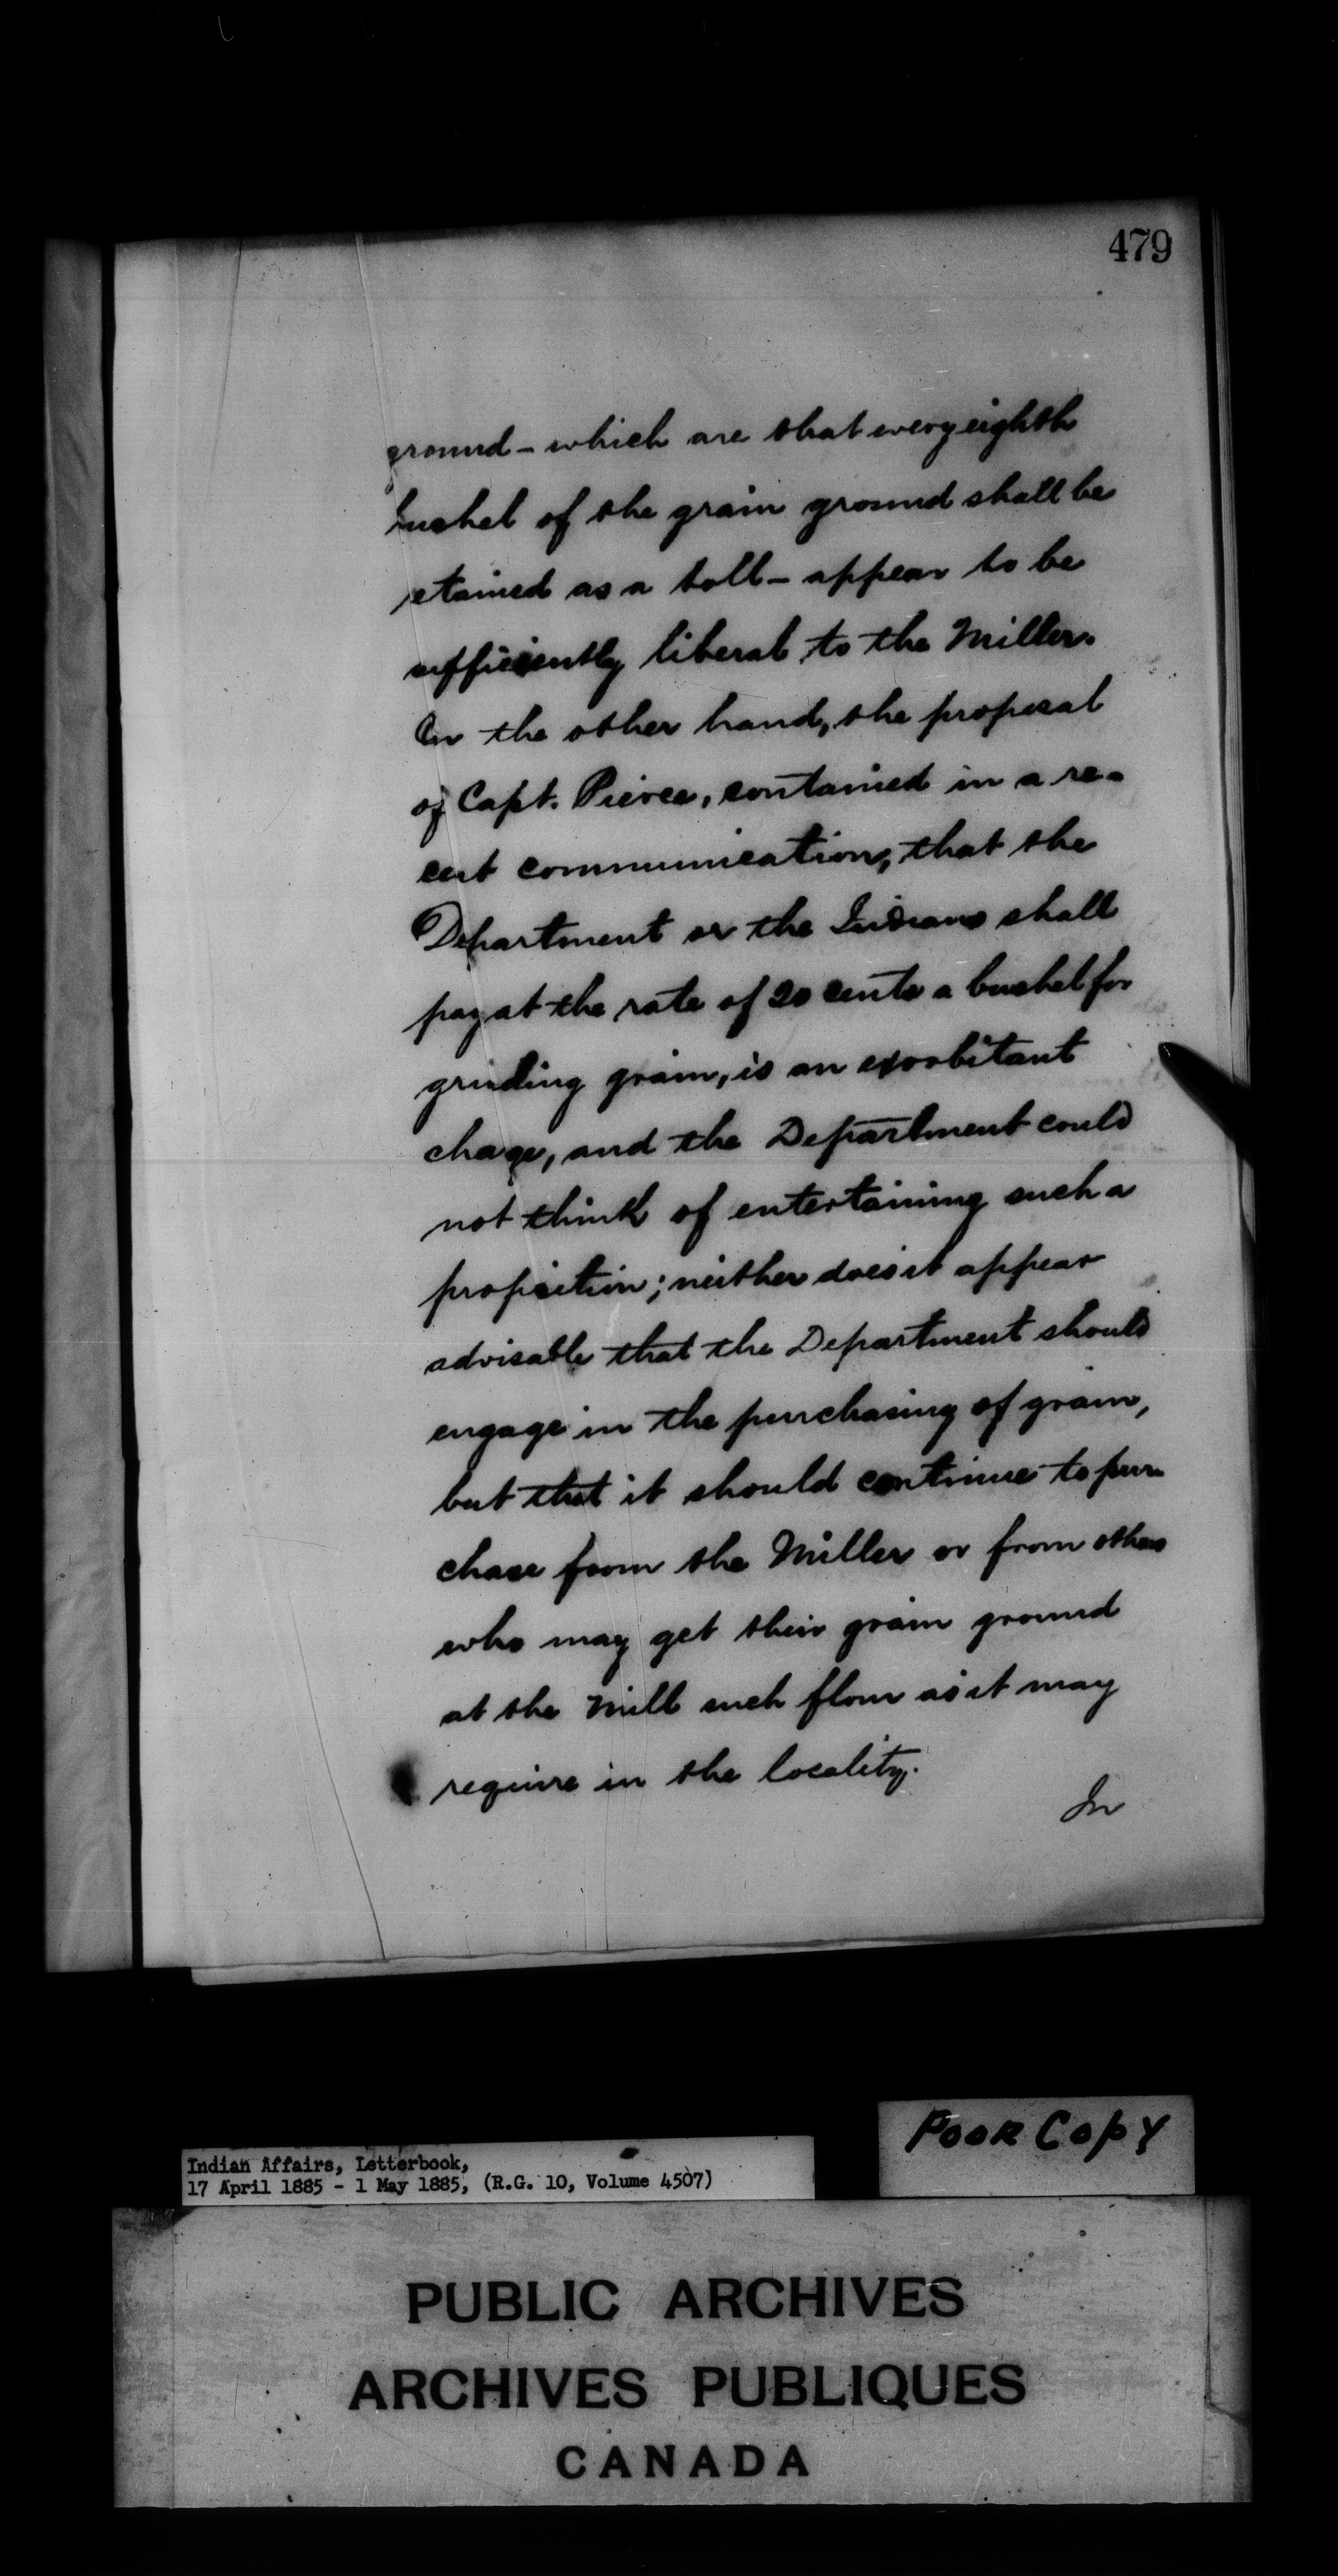 479
ground - which are that every eighth
bushel of the grain ground shall be
retained as a toll - appear to be
sufficiently liberal to the Miller.
On the other hand, the proposal
of Capt. Pierce, contained in a re-
cent communication, that the
Department or the Indians shall
pay at the rate of 20 cents a bushel for
grinding grain, is an exorbitant
charge, and the Department could
not think of entertaining such a
proposition; neither does it appear
advisable that the Department should
engage in the purchasing of grain,
but that it should continue to pur-
chase from the Miller or from others
who may get their grain ground
at the Mill such flour as it may
require in the locality.
In
Poor Copy
Indian Affairs, Letterbook,
17 April 1885 - 1 May 1885, (R.G. 10, Volume 4507)
PUBLIC ARCHIVES
ARCHIVES PUBLIQUES
CANADA